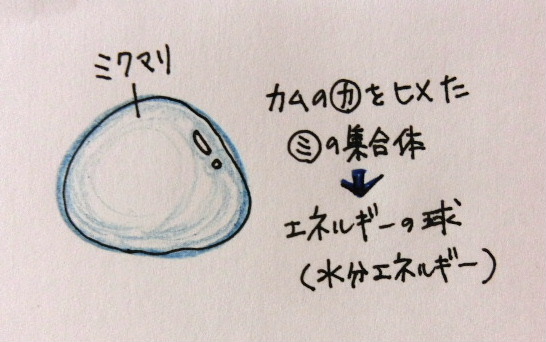 ミクマリ
カムの㋕をヒメた
㋯の集合体
↓
エネルギーの球
(水分エネルギー)